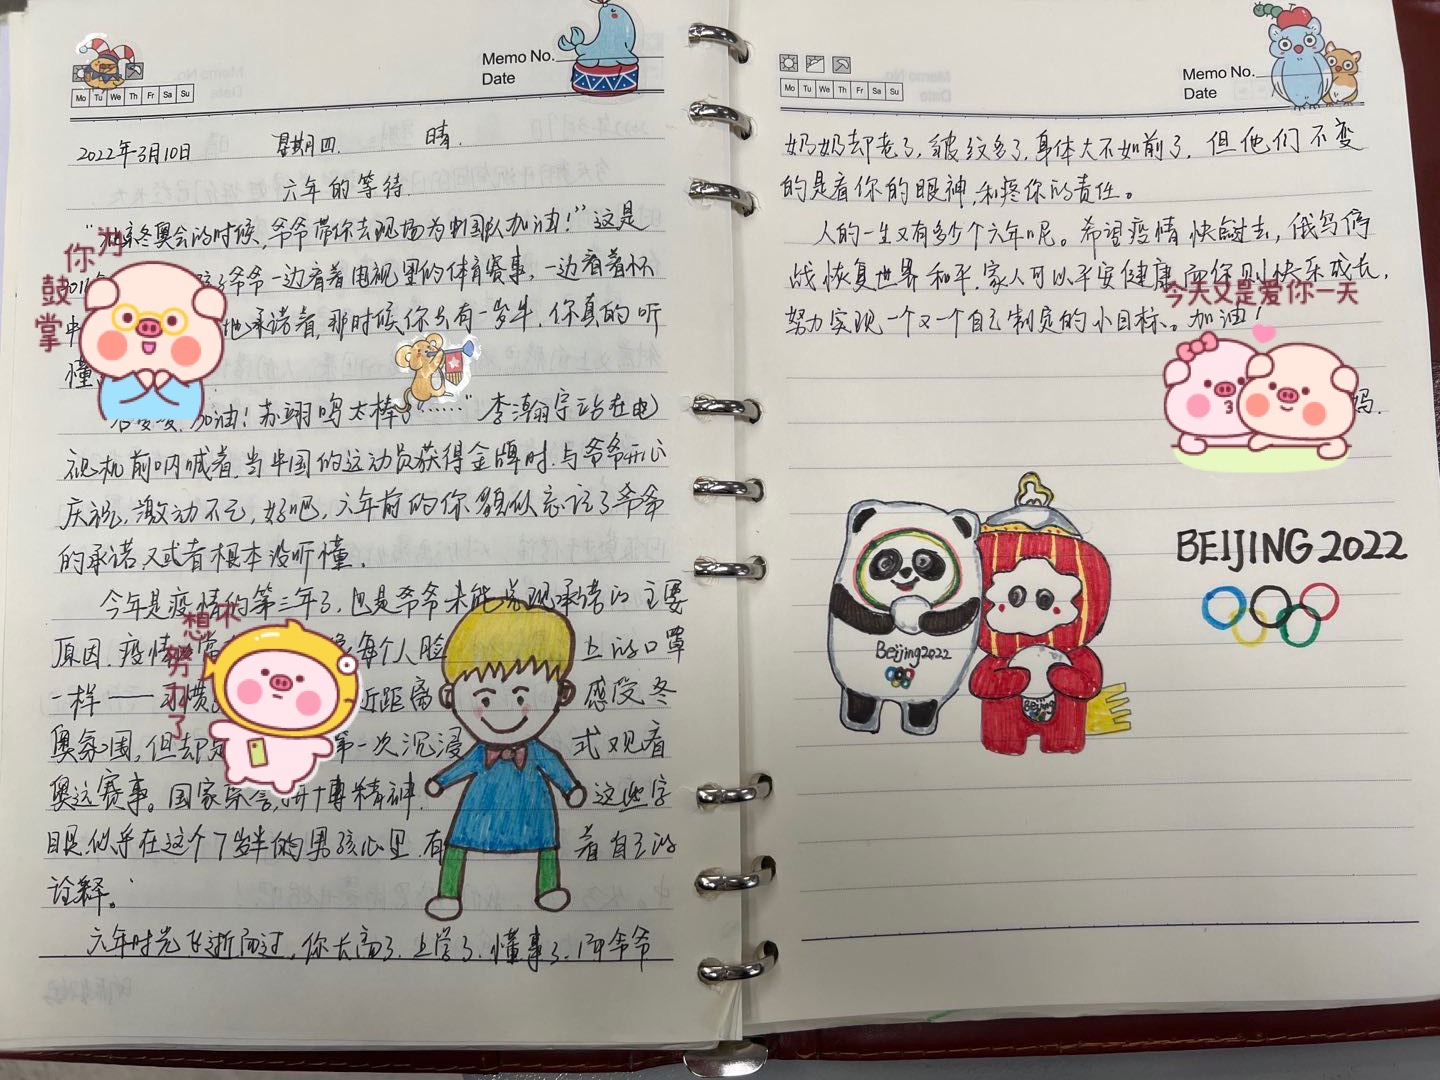 Memo No.
Date
Mo Tu We Th Fr Sa Su
2022年3月10日 星期四 晴.
六年的等待
"北京冬奥会的时候,爷爷带你去现场为中国队加油!"这是
爷爷一边看着电视里的体育赛事,一边看着杯
中 地承诺着,那时候你只有一岁半,你真的听
懂
加油!苏翊鸣太棒了……"李瀚宇站在电
视机前呐喊者,当中国的运动员获得金牌时,与爷爷开心
庆祝,激动不已,好吧,六年前的你貌似忘记了爷爷
的承诺,又或者根本没听懂.
今年是疫情的第三年了,也是爷爷未能兑现承诺的主要
原因,疫情 每个人脸 上的口罩
一样——习惯 近距离 感受冬
奥氛围,但却 第一次沉浸 式观看
奥运赛事。国家荣誉,拼搏精神. 这些字
眼似乎在这个7岁半的男孩心里,有 着自己的
诠释。
六年时光飞逝而过,你长高了,上学了,懂事了,而爷爷
你为
鼓
掌
想休
努
力
了
Memo No.
Date
Mo Tu We Th Fr Sa Su
奶奶却老了,皱纹多了,身体大不如前了.但他们不变
的是看你的眼神,和疼你的责任。
人的一生又有多少个六年呢。希望疫情快点过去,俄乌停
战恢复世界和平,家人可以平安健康,而你则快乐成长,
努力实现一个又一个自己制定的小目标。加油!
今天又是爱你一天
妈.
BEIJING 2022
Beijing2022
Beijing